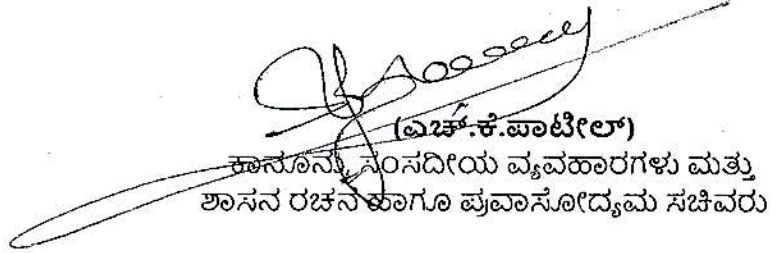 (ಎಚ್.ಕೆ.ಪಾಟೀಲ್)
ಕಾನೂನು, ಸಂಸದೀಯ ವ್ಯವಹಾರಗಳು ಮತ್ತು
ಶಾಸನ ರಚನೆ ಹಾಗೂ ಪ್ರವಾಸೋದ್ಯಮ ಸಚಿವರು